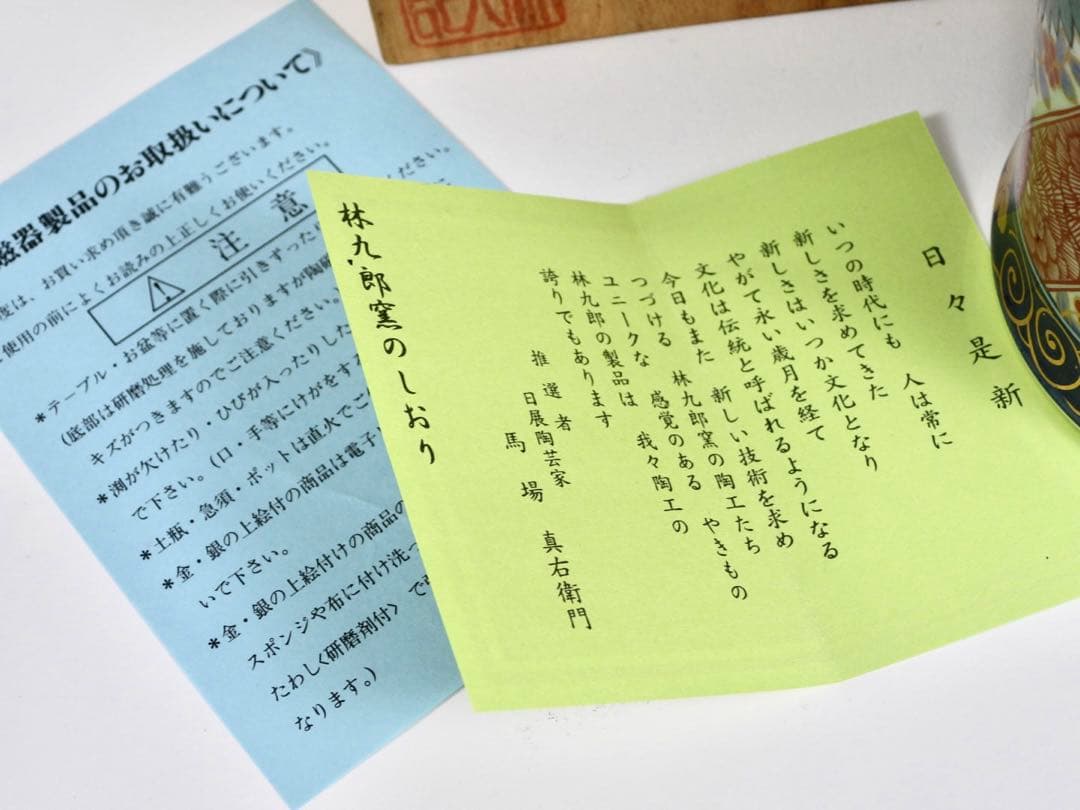 磁器製品のお取扱いについて》
度は、お買い求め頂き誠に有難うございます。
使用の前によくお読みの上正しくお使いください。
注意
*テーブル・お盆等に置く際に引きずったり
ください。
(底部は研磨処理を施しておりますが陶磁
キズがつきますのでご注意ください。
*渕が欠けたり・ひびが入ったりした
で下さい。(口・手等にけがをする
*土瓶・急須・ポットは直火でご
*金・銀の上絵付の商品は電子
いで下さい。
*金・銀の上絵付けの商品の
スポンジや布に付け洗っ
たわしく研磨剤付〉で
なります。)
日々是新
いつの時代にも 人は常に
新しさを求めてきた
新しさはいつか文化となり
やがて永い歳月を経て
文化は伝統と呼ばれるようになる
今日もまた 新しい技術を求め
つづける 林九郎窯の陶工たち
ユニークな 感覚のある やきもの
林九郎の製品は 我々陶工の
誇りでもあります
推選者
日展陶芸家
馬場 真右衛門
林九郎窯のしおり